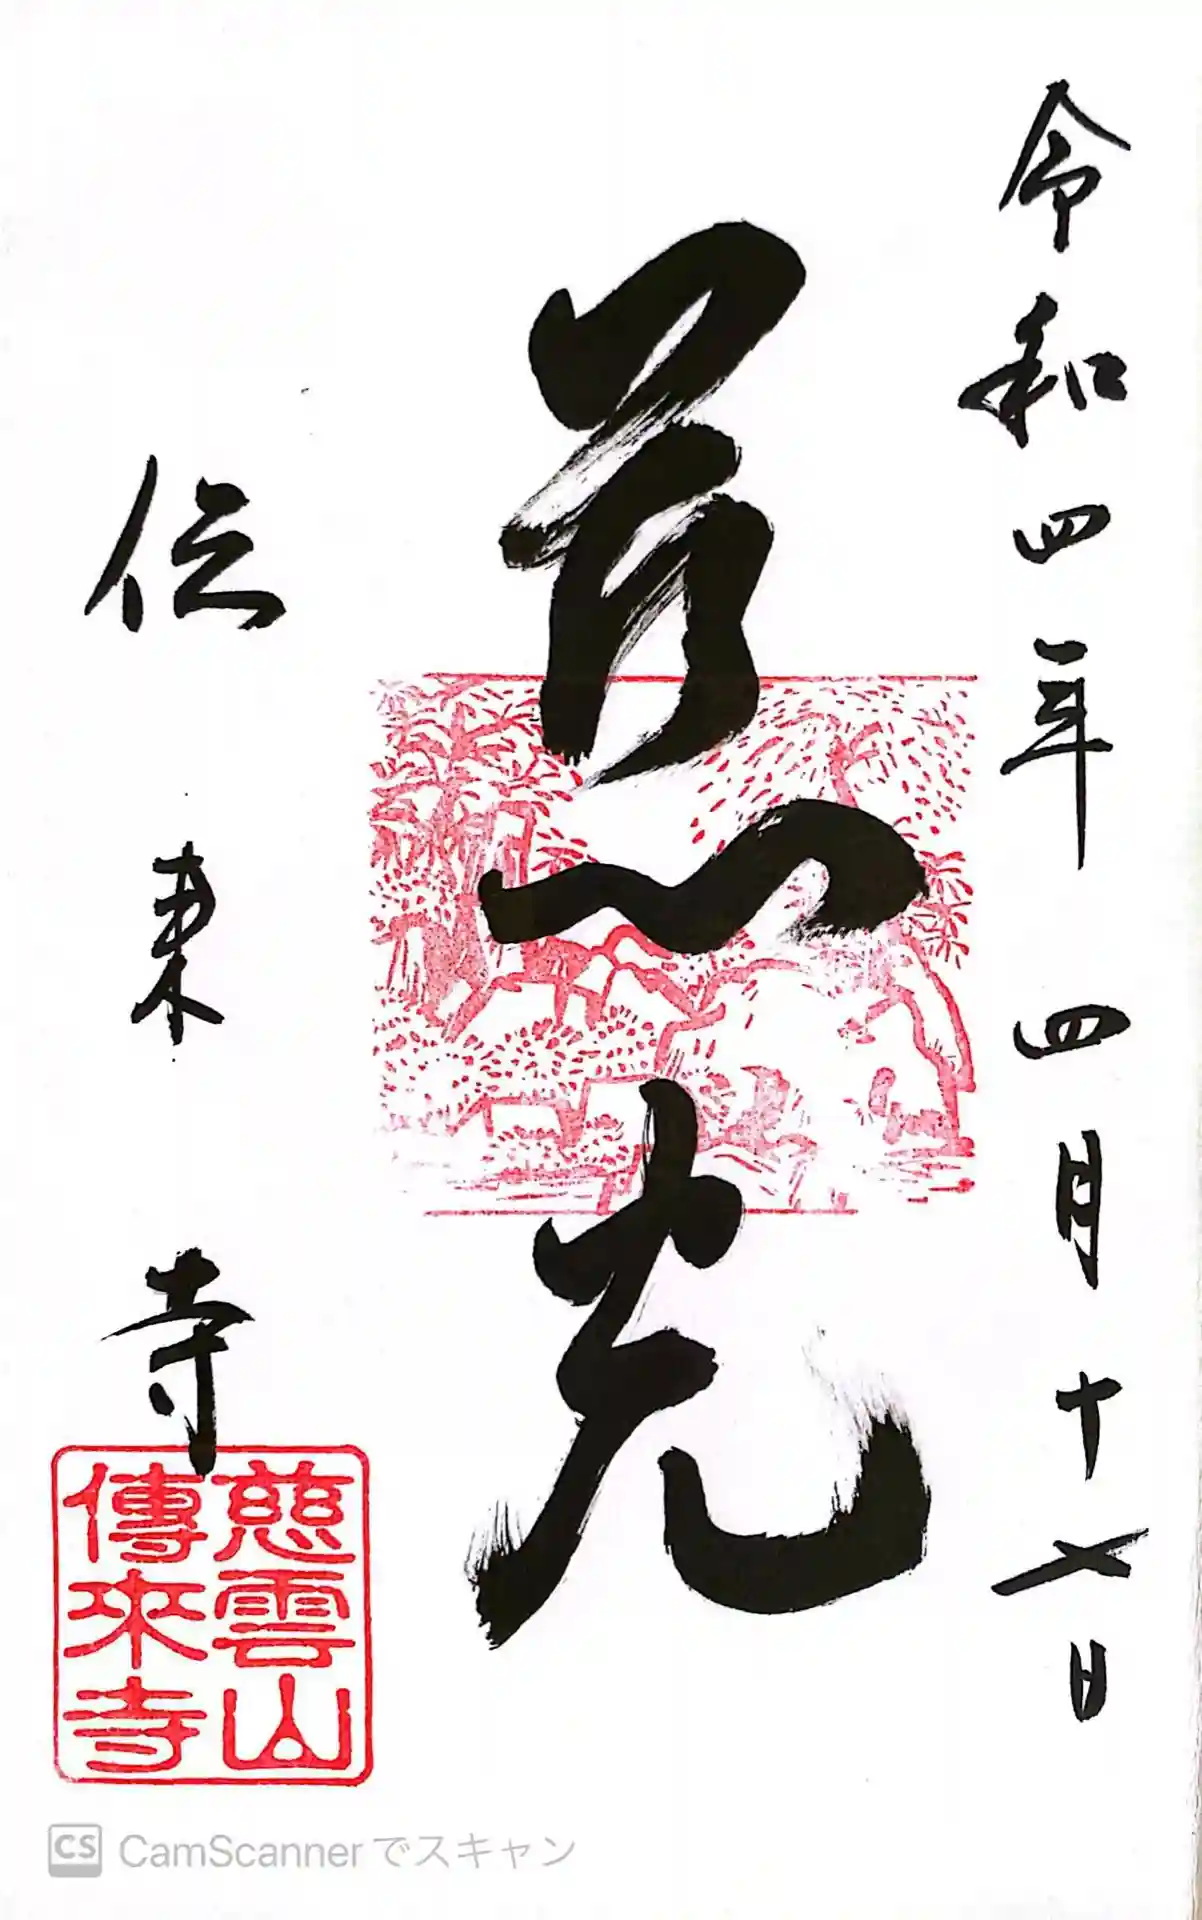 令和四年四月十七日
慈光
伝来寺
慈雲山
傳來寺
CS CamScannerでスキャン